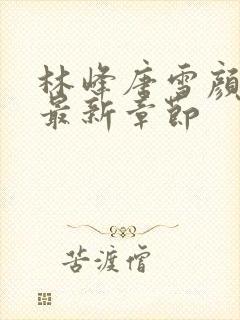 林峰唐雪顔
最新章節
苦渡僧